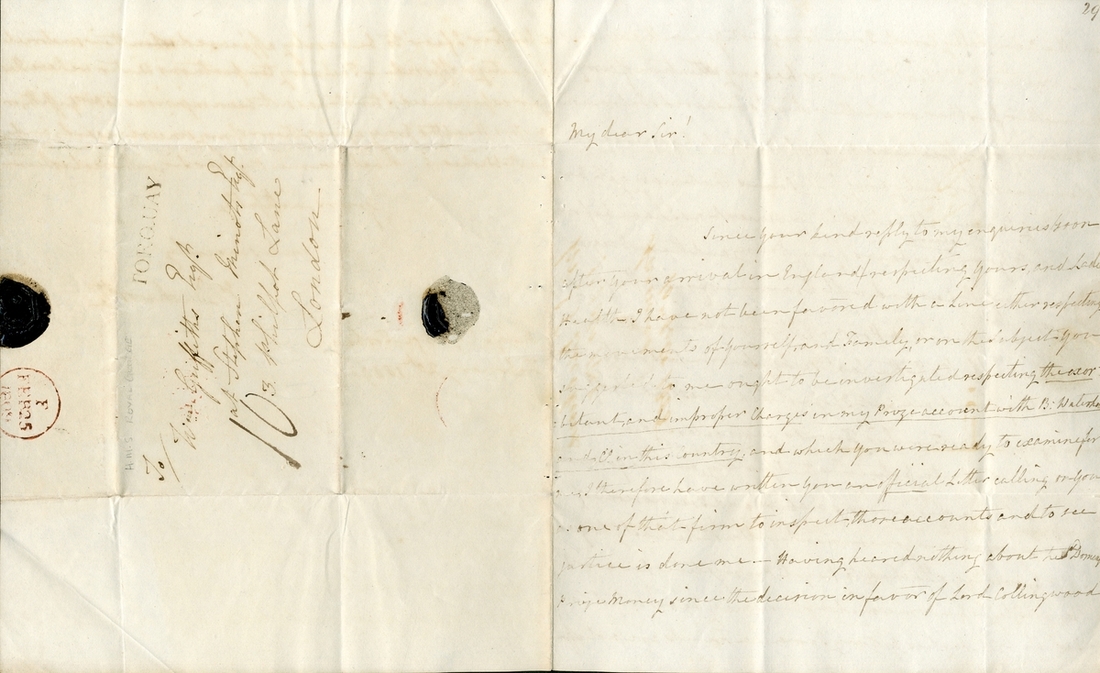 TORQUAY
To/
Wm Griffiths Esqr
at Stephen Minot Esqr
3 Philpot Lane
London
FEB 25
HMS Royal George
29
My dear Sir!
Since your kind reply to my enquiries soon
after your arrival in England respecting yours, and Lady
Health I have not been favored with a Line either respecting
the movements of yourself and Family, or on the subject you
to me ought to be investigated respecting the exor
bitant, and improper Charges in my Prize account with B: Waterho
in this country, and which you were ready to examine for
me, I therefore have written you an official Letter calling on you
one of that firm to inspect those accounts and to see
justice is done me — Having heared nothing about the St Domin
prize Money since the decision in favor of Lord Collingwood